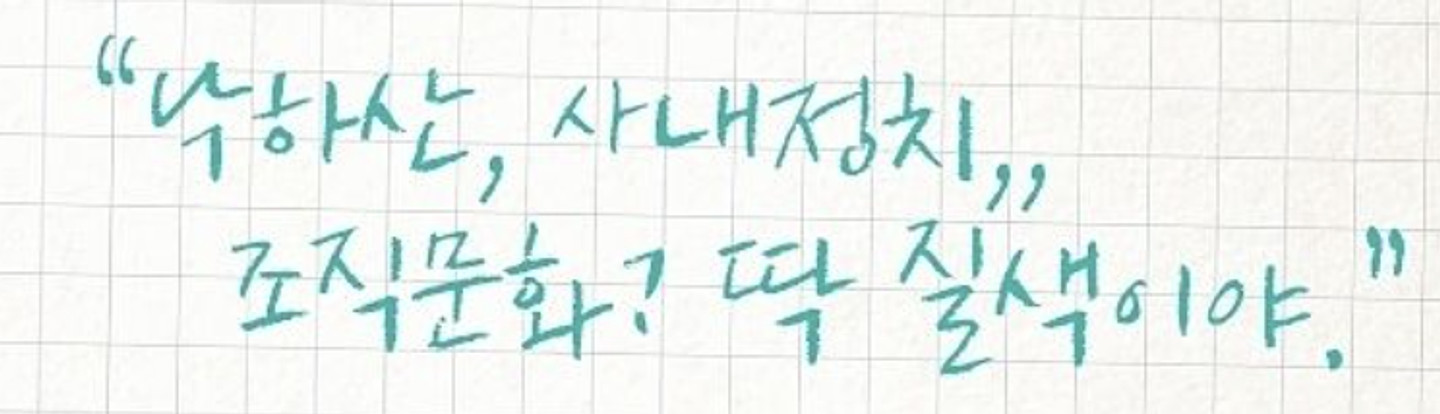 “낙하산, 사내정치,,
조직문화? 딱 질색이야.”